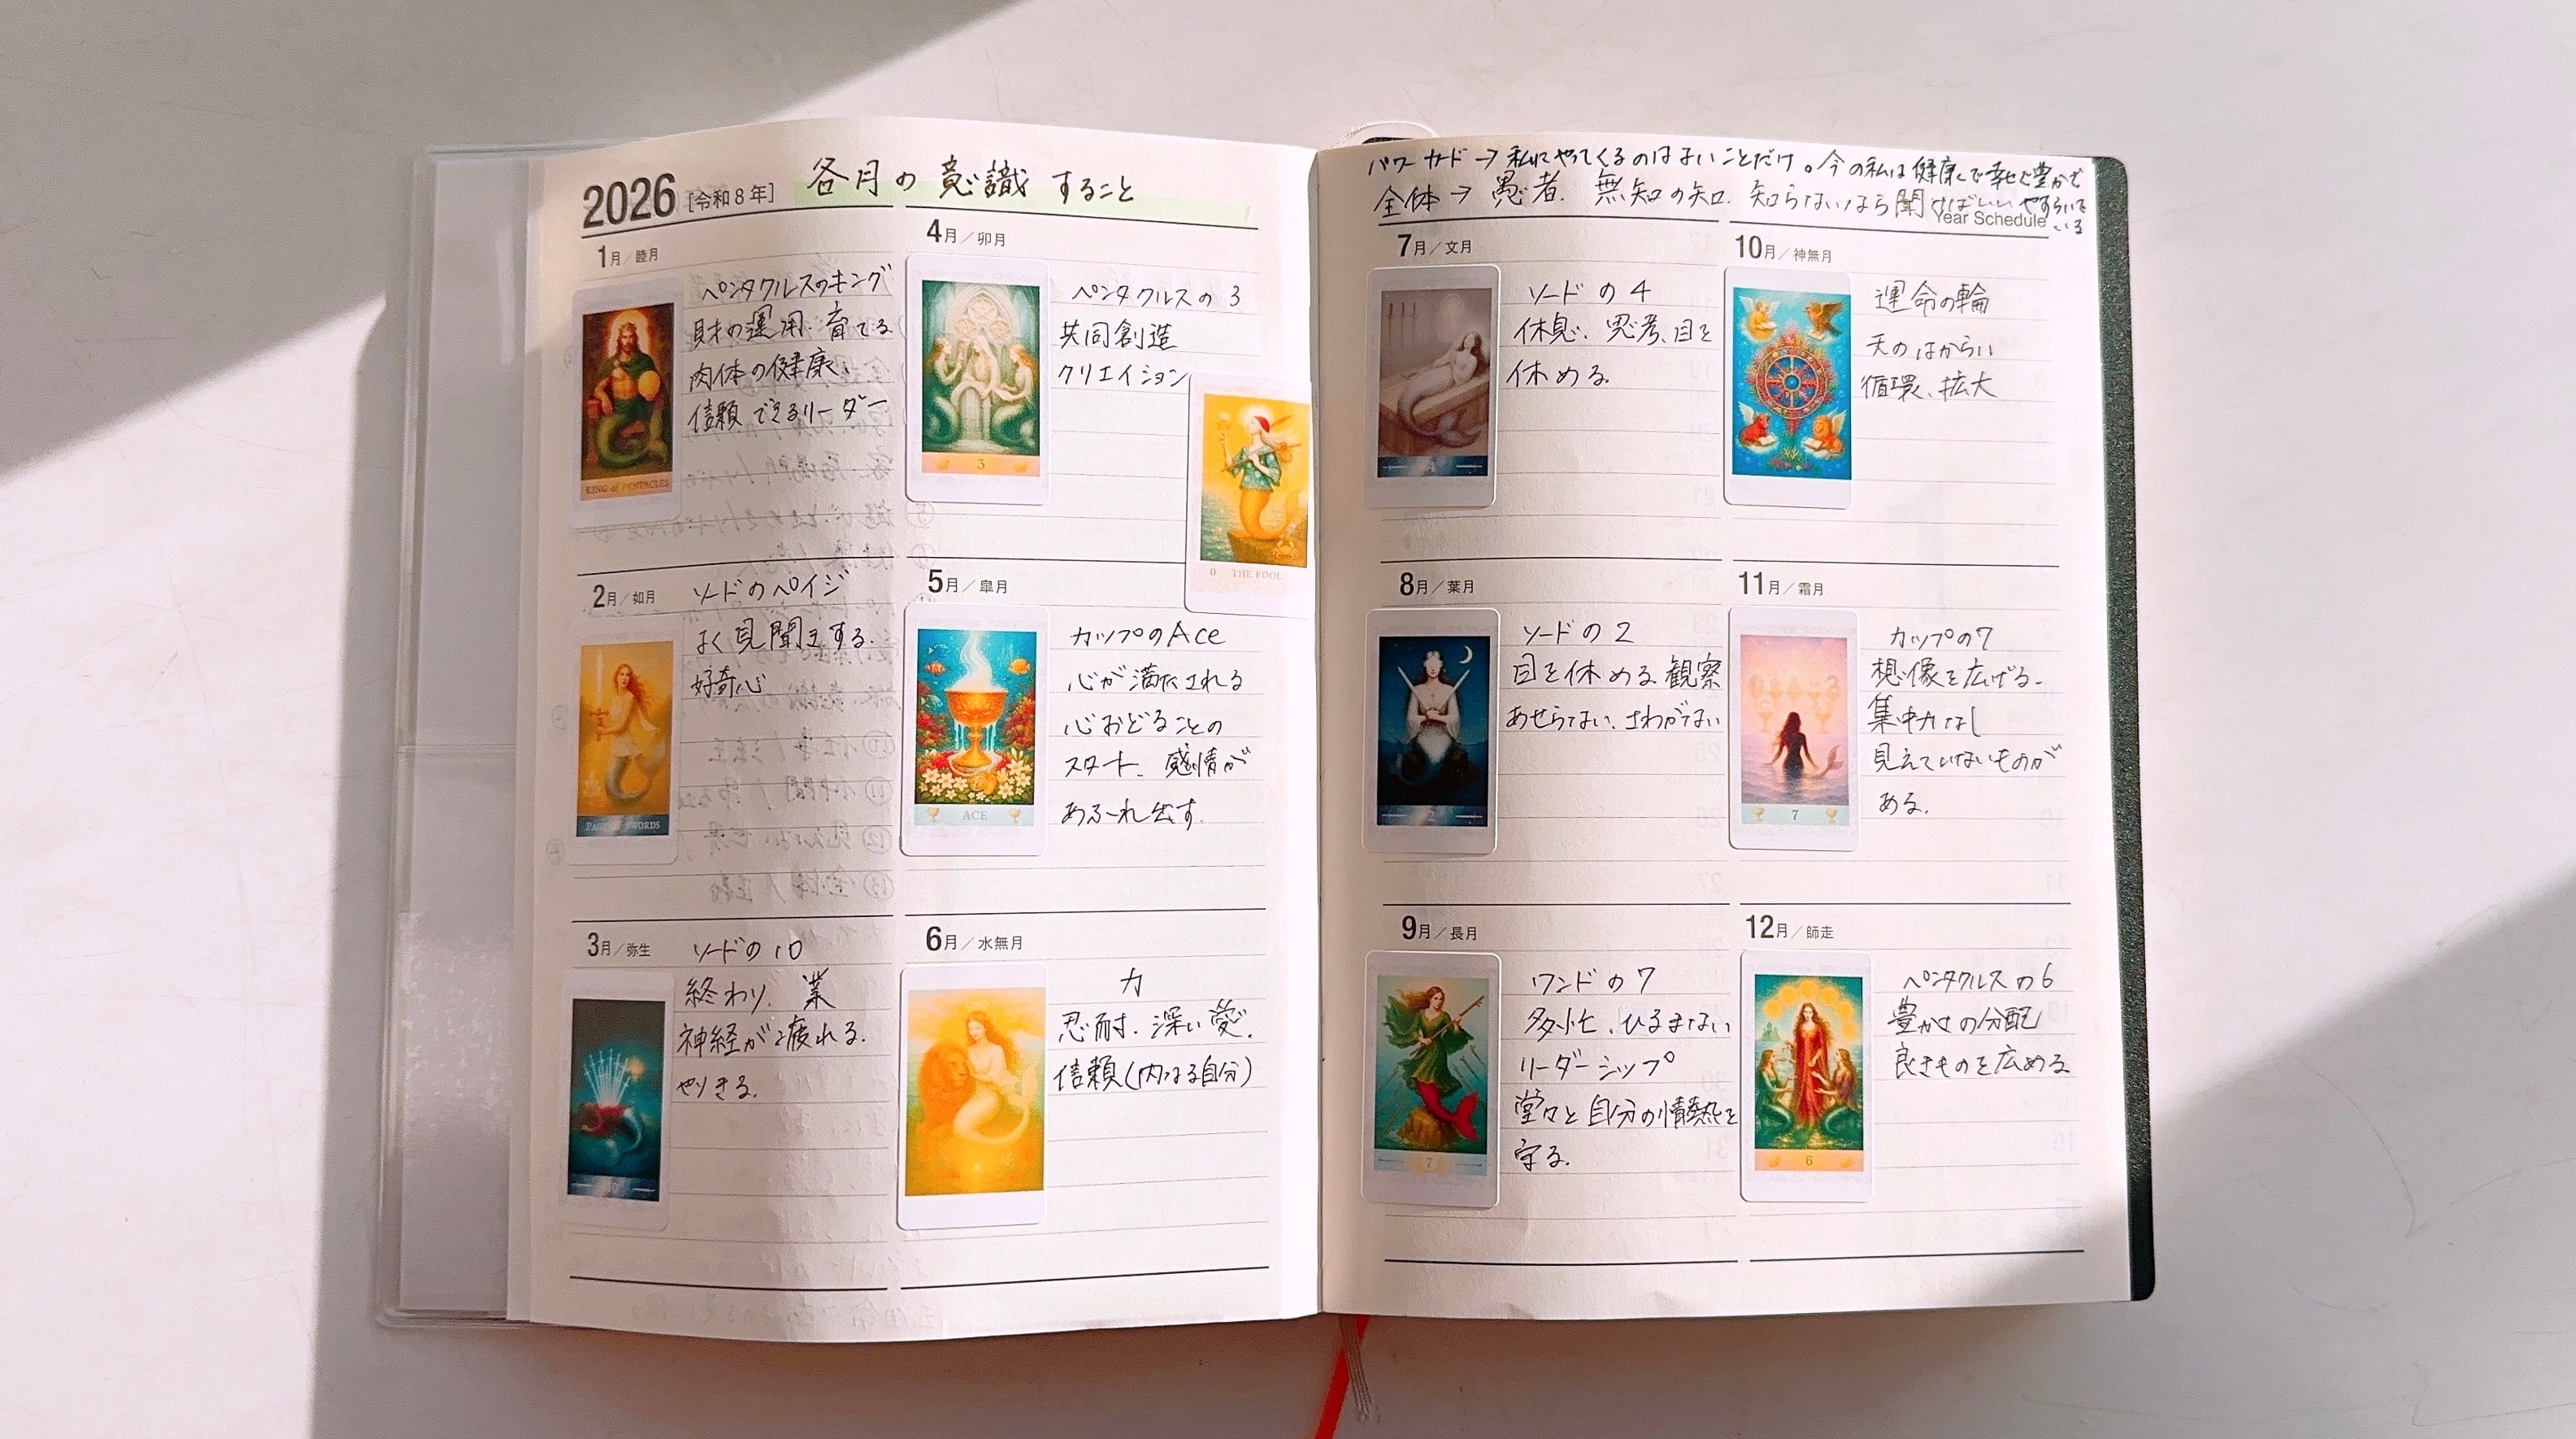 2026 [令和8年] 各月の意識すること
1月/睦月
ペンタクルスのキング
財の運用、育てる
肉体の健康、
信頼できるリーダー
KING of PENTACLES
2月/如月
ソードのペイジ
よく見聞きする.
好奇心
PAGE of SWORDS
3月/弥生
ソードの10
終わり. 業
神経が疲れる.
やりきる.
10
4月/卯月
ペンタクルスの3
共同創造
クリエイション
3
0 THE FOOL
5月/皐月
カップのAce
心が満たされる
心おどることの
スタート. 感情が
あふれ出す.
ACE
6月/水無月
力
忍耐. 深い愛.
信頼(内なる自分)
パワーカード→私にやってくるのはよいことだけ。今の私は健康で幸せで豊かで
全体→愚者. 無知の知. 知らないなら聞けばいい やすらいで
いる
Year Schedule
7月/文月
ソードの4
休息. 思考、目を
休める
4
8月/葉月
ソードの2
目を休める 観察
あせらない、さわがない
2
9月/長月
ワンドの7
多忙、ひるまない
リーダーシップ
堂々と自分の情熱を
守る.
7
10月/神無月
運命の輪
天のはからい
循環、拡大
11月/霜月
カップの7
想像を広げる.
集中力なし
見えていないものが
ある.
7
12月/師走
ペンタクルスの6
豊かさの分配
良きものを広める
6